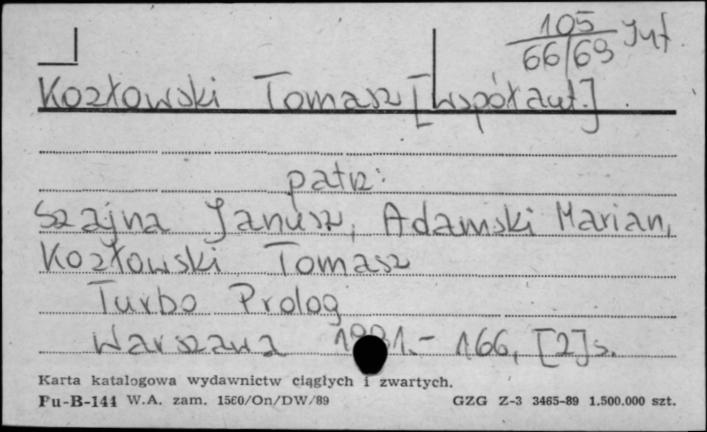 105
66/69 Inf.
Kozłowski Tomasz [współaut.]
patrz:
Szajna Janusz, Adamski Marian,
Kozłowski Tomasz
Turbo Prolog
Warszawa 1991.- 166, [2]s.
Karta katalogowa wydawnictw ciągłych i zwartych.
Pu-B-144 W.A. zam. 1560/On/DW/89 GZG Z-3 3465-89 1.500.000 szt.